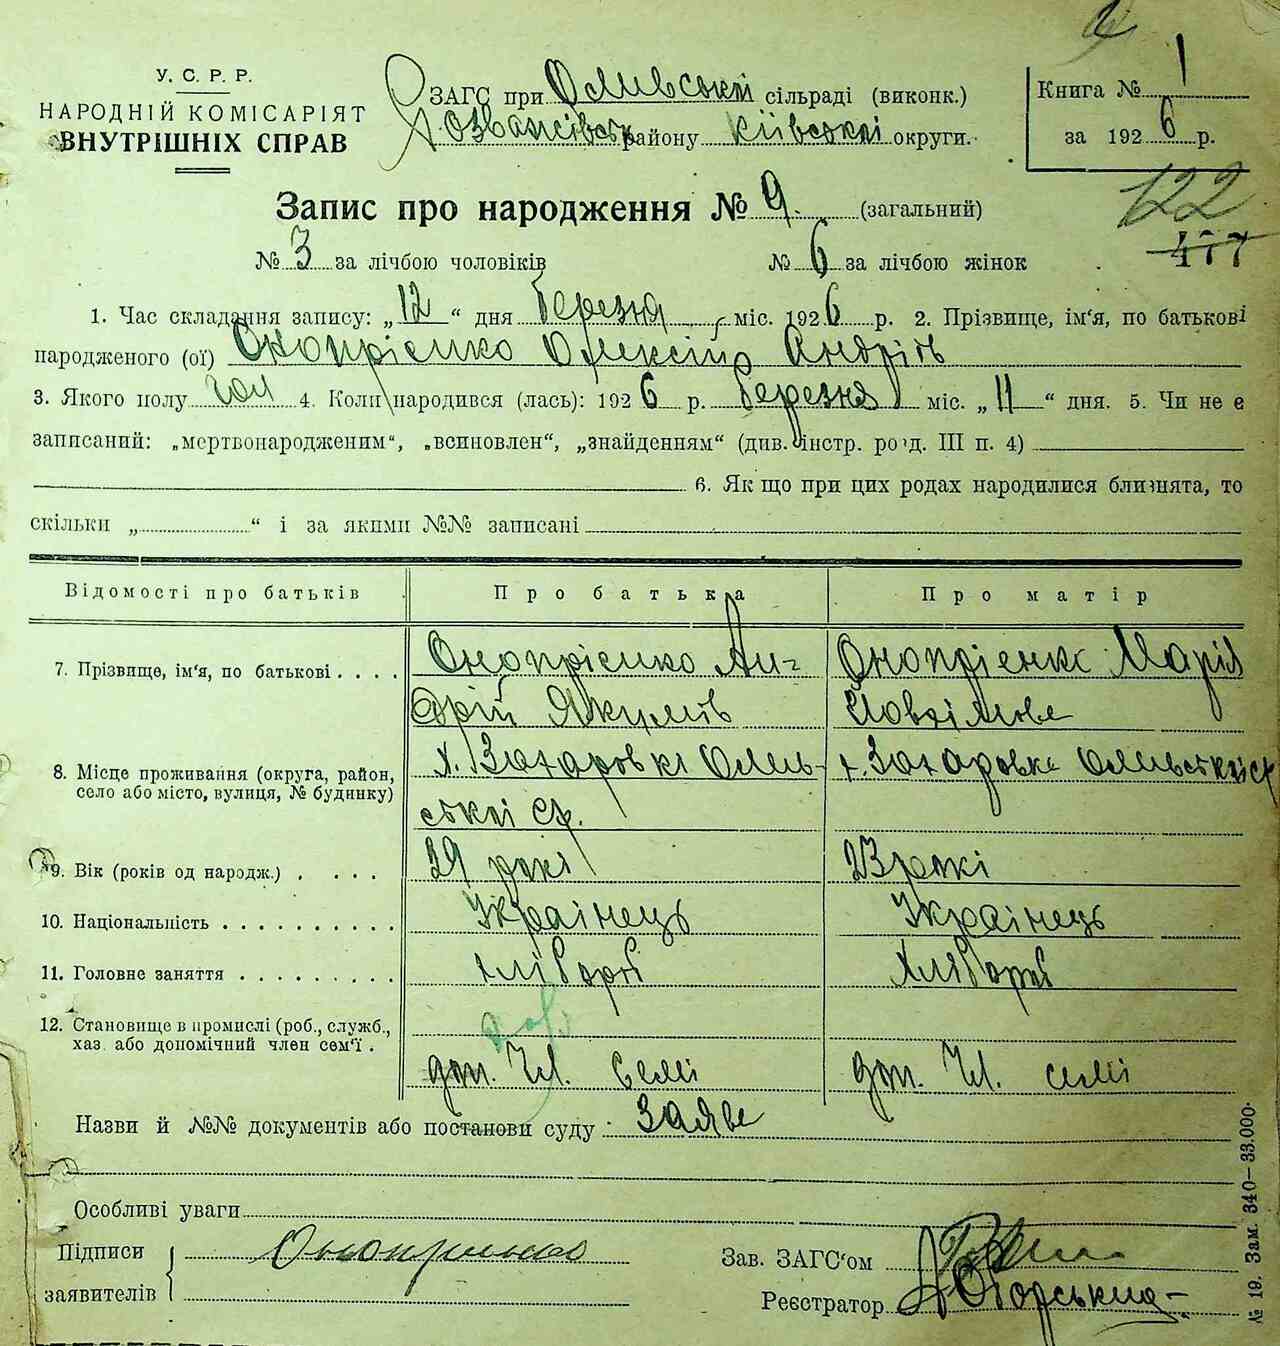 У. С. Р. Р.
НАРОДНІЙ КОМІСАРІЯТ
ВНУТРІШНІХ СПРАВ
ЗАГС при сільраді (виконк.)
району Київської округи.
Книга № 1
за 1926 р.
Запис про народження № 9 (загальний)
122
477
№ 3 за лічбою чоловіків № 6 за лічбою жінок
1. Час складання запису: „12“ дня березня міс. 1926 р. 2. Прізвище, ім‘я, по батькові
народженого (ої) Онопрієнко Олексій Андрієв
3. Якого полу чол 4. Коли народився (лась): 1926 р. березня міс. „11“ дня. 5. Чи не є
записаний: „мертвонародженим“, „всиновлен“, „знайденням“ (див. інстр. розд. III п. 4)
6. Як що при цих родах народилися близнята, то
скільки „ “ і за якими №№ записані
Відомості про батьків Про батька Про матір
7. Прізвище, ім‘я, по батькові . . . . Онопрієнко Ан- Онопрієнко Марія
дрій
8. Місце проживання (округа, район, х. Захаровка х. Захаровка
село або місто, вулиця, № будинку)
9. Вік (років од народж.) . . . . 29 рокі 23 рокі
10. Національність . . . . . . . . . . Українець Українець
11. Головне заняття . . . . . . . . . хлібороб хлібороб
12. Становище в промислі (роб., служб.,
хаз. або допомічний член сем‘ї . доп. чл. семі доп. чл. семі
Назви й №№ документів або постанови суду Заява
Особливі уваги
Підписи Онопрієнко Зав. ЗАГС‘ом
заявителів Реєстратор
№ 19. Зам. 340—33.000.